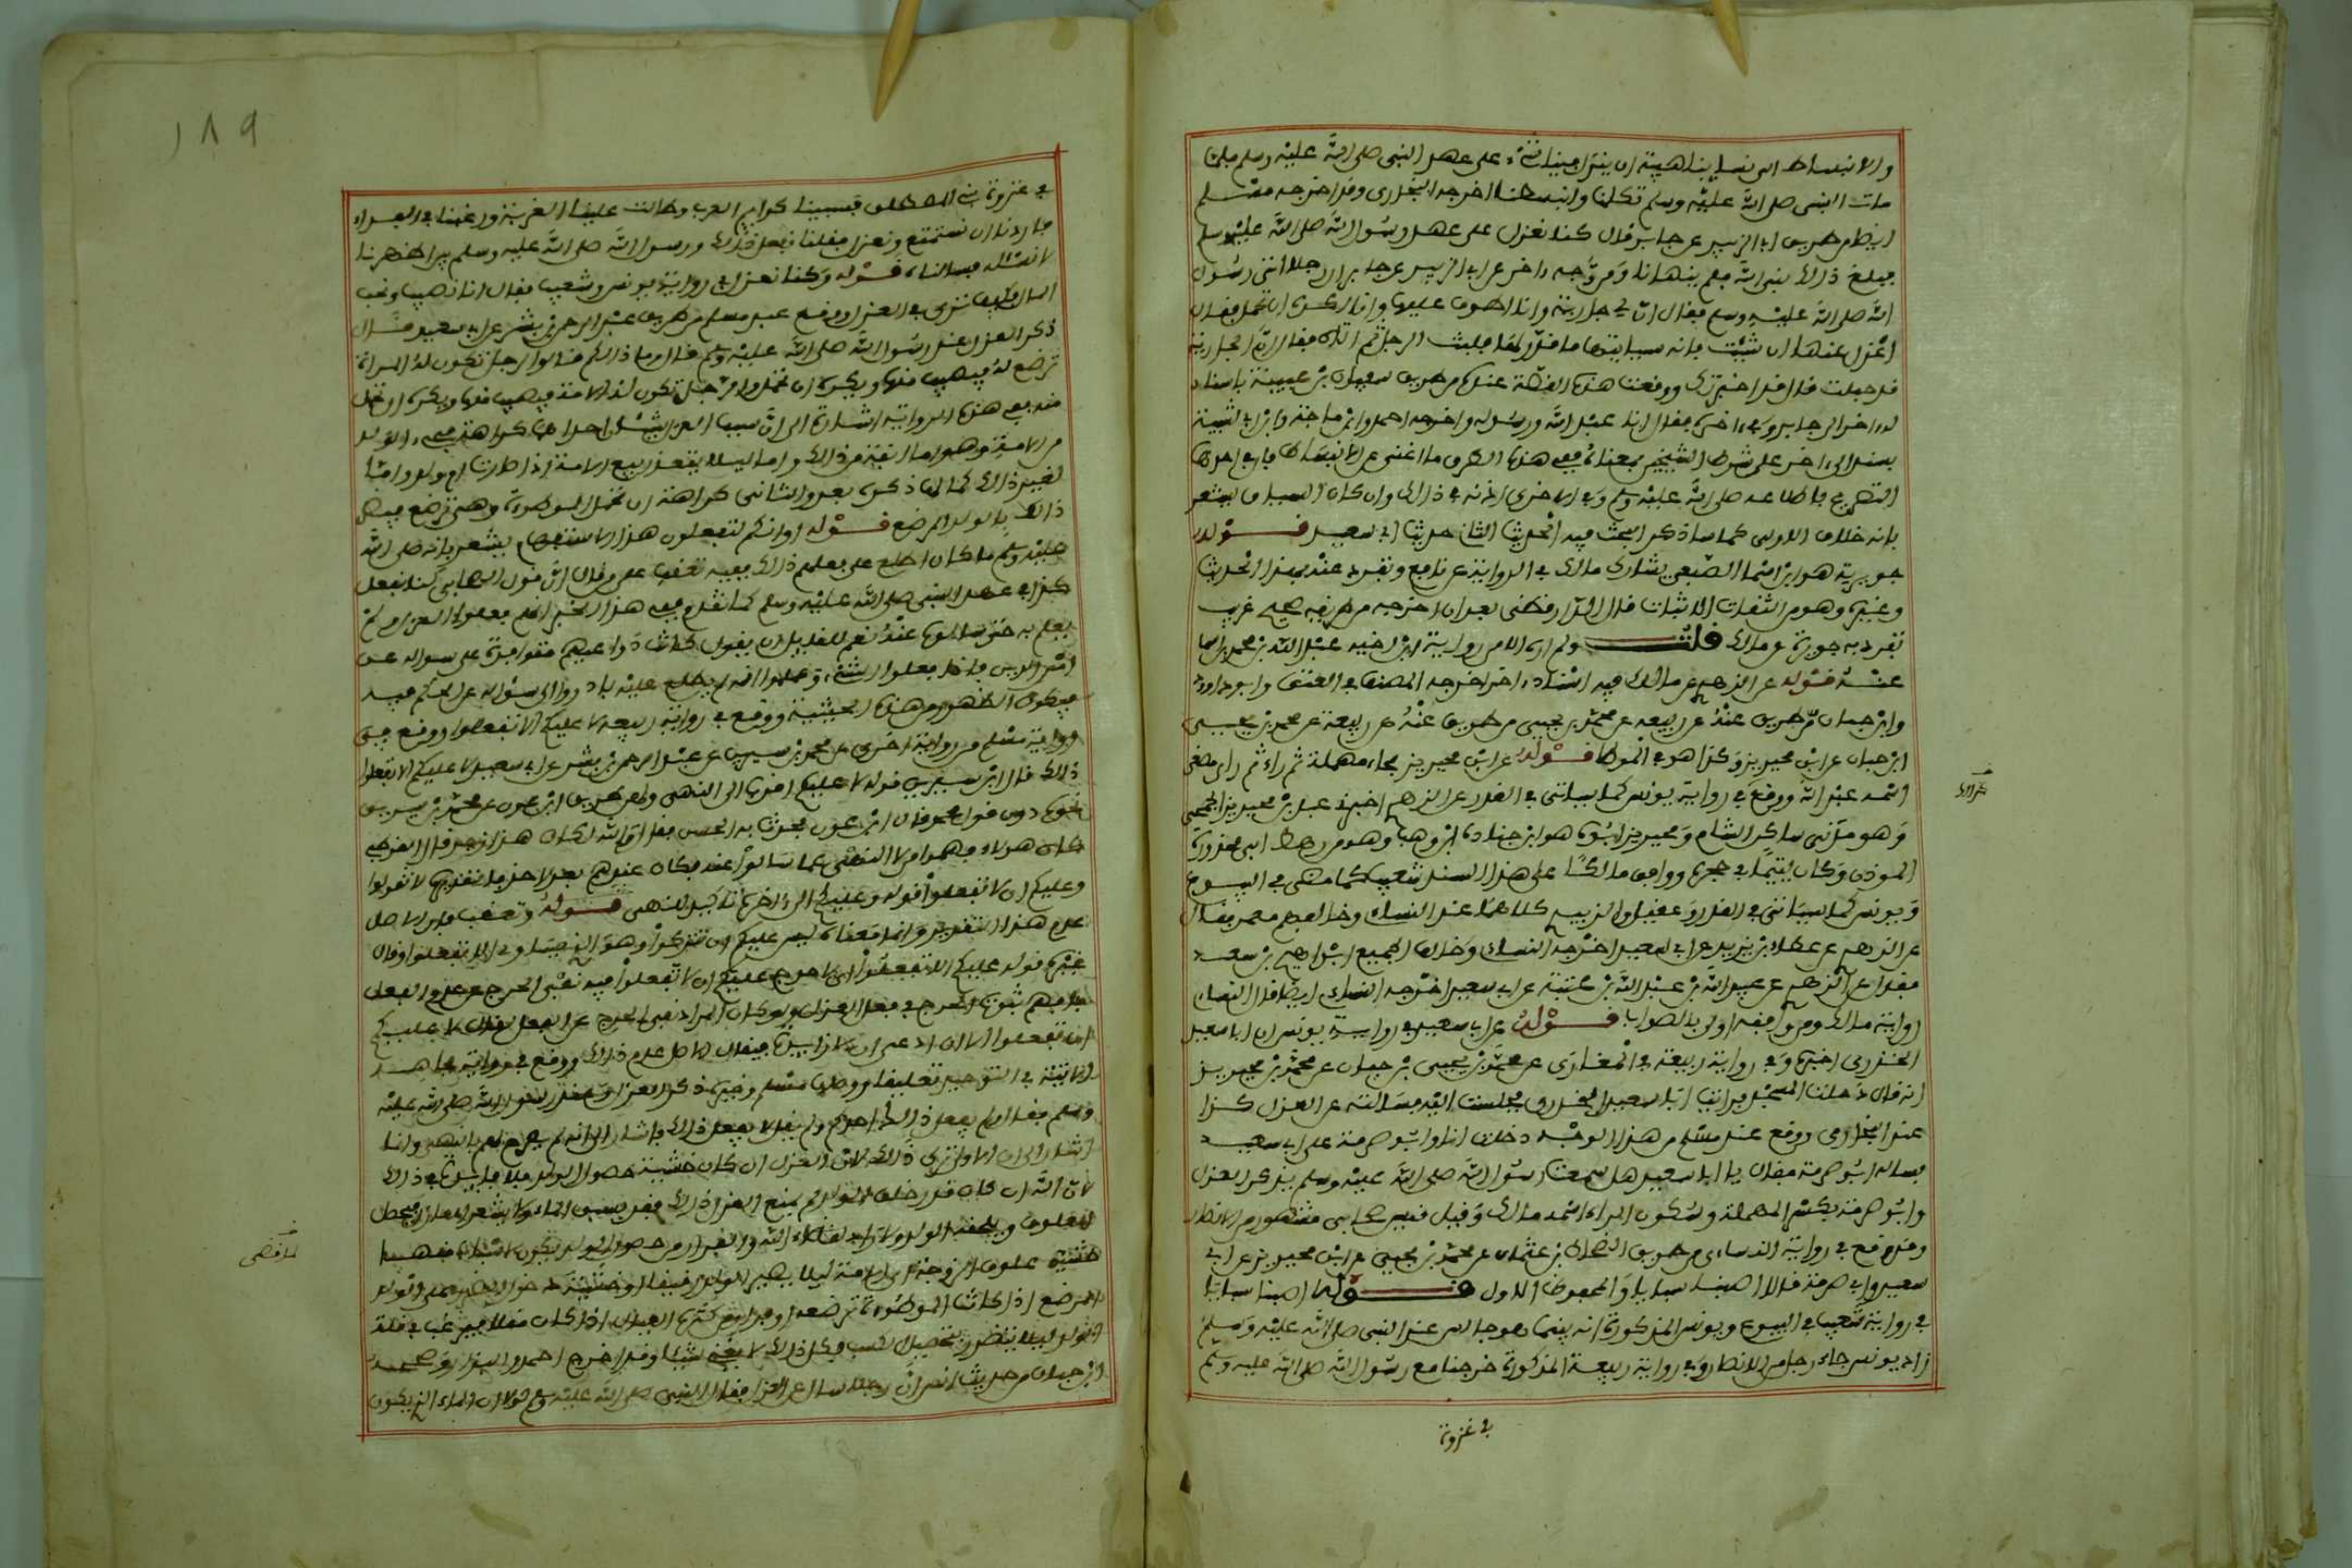 والانبساط الى نسائنا هيبة ان ينزل فينا شيء على عهد النبي صلى الله عليه وسلم فلما
مات النبي صلى الله عليه وسلم تكلمنا وانبسطنا اخرجه البخاري وقد اخرجه مسلم
ايضا من طريق ابي الزبير عن جابر قال كنا نعزل على عهد رسول الله صلى الله عليه وسلم
فبلغ ذلك نبي الله فلم ينهانا ومن وجه اخر عن ابي الزبير عن جابر ان رجلا اتى رسول
الله صلى الله عليه وسلم فقال ان لي جارية وانا اطوف عليها وانا اكره ان تحمل فقال
اعزل عنها ان شئت فانه سياتيها ما قدر لها فلبث الرجل ثم اتاه فقال ان الجارية
قد حبلت قال قد اخبرتك ووقعت هذه القصة عنده من طريق سفيان بن عيينة باسناد
له اخر الى جابر وفي اخره فقال انا عبد الله ورسوله واخرجه احمد وابن ماجة وابن ابي شيبة
بسند اخر على شرط الشيخين بمعناه ففي هذه الطرق ما اغنى عن الاستنباط فان في احداها
التصريح باطلاعه صلى الله عليه وسلم وفي الاخرى اذنه في ذلك وان كان السياق يشعر
بانه خلاف الاولى كما ساذكر البحث فيه الحديث الثاني حديث ابي سعيد قوله
جويرية هو ابن اسما الضبعي يشارك مالك في الرواية عن نافع وتفرد عنه بهذا الحديث
وغيره وهو من الثقات الاثبات قال الدارقطني بعد ان اخرجه من طريقه صحيح غريب
تفرد به جويرية عن مالك قلت ولم اره الا من رواية ابن اخيه عبد الله بن محمد بن اسما
عنه قوله عن الزهري عن مالك فيه اسناد اخر اخرجه المصنف في العتق وابو داوود
وابن حبان من طريق عنه عن ربيعه عن محمد بن يحيى من طريق عنه عن ربيعة عن محمد بن يحيى
ابن حبان عن ابن محيريز وكذا هو في الموطا قوله عن ابن محيريز بحاء مهملة ثم راء ثم زاي مصغر
اسمه عبد الله ووقع في رواية يونس كما سياتي في القدر عن الزهري اخبرني عبد بن محيريز الجمحي
وهو مدني سكن الشام ومحيريز ابوه هو ابن جنادة ابن وهب وهو من رهط ابي محذورة
الموذن وكان يتيما في حجره ووافق مالكا على هذا السند شعيب كما مضى في البيوع
ويونس كما سياتي في القدر وعقيل والزبيدي كلاهما عند النسائي وخالفهم معمر فقال
عن الزهري عن عطاء بن يزيد عن ابي سعيد اخرجه النسائي وخالف الجميع ابراهيم بن سعد
فقال عن الزهري عن عبيد الله بن عبد الله بن عتبة عن ابي سعيد اخرجه النساي ايضا قال النساي
رواية مالك ومن وافقه اولى بالصواب قوله عن ابي سعيد في رواية يونس ان ابا سعيد
الخدري اخبره وفي رواية ربيعة في المغازي عن محمد بن يحيى بن حبان عن محمد بن محيريز
انه قال دخلت المسجد فرايت ابا سعيد الخدري فجلست اليه فسالته عن العزل كذا
عند البخاري ووقع عند مسلم من هذا الوجه دخلت انا وابو صرمة على ابي سعيد
فساله ابو صرمة فقال يا ابا سعيد هل سمعت رسول الله صلى الله عليه وسلم يذكر العزل
وابو صرمة بكسر المهملة وسكون الراء اسمه مالك وقيل قيس صحابي مشهور من الانصار
وقد وقع في رواية النساءي من طريق الضحاك بن عثمان عن محمد بن يحيى عن ابن محيريز عن ابي
سعيد وابي صرمة قالا اصبنا سبايا والمحفوظ الاول قوله اصبنا سبايا
في رواية شعيب في البيوع ويونس المذكورة انه بينما هو جالس عند النبي صلى الله عليه وسلم
زاد يونس جاء رجل من الانصار وفي رواية ربيعة المذكورة خرجنا مع رسول الله صلى الله عليه وسلم
في غزوة
عن مالك
١٨٩
في غزوة بني المصطلق فسبينا كرايم العرب وطالت علينا العزبة ورغبنا في الفداء
فاردنا ان نستمتع ونعزل فقلنا نفعل ذلك ورسول الله صلى الله عليه وسلم بين اظهرنا
لا نساله فسالناه قوله وكنا نعزل في رواية يونس وشعيب فقال انا نصيب ونحب
المال فكيف ترى في العزل ووقع عند مسلم من طريق عبد الرحمن بن بشر عن ابي سعيد قال
ذكر العزل عند رسول الله صلى الله عليه وسلم قال وما ذلكم قالوا الرجل تكون له المراة
ترضع له فيصيب منها ويكره ان تحمل والرجل تكون له الامة فيصيب منها ويكره ان تحمل
منه ففي هذه الرواية اشارة الى ان سبب العزل شيئان احداهما كراهة مجيء الولد
من الامة وهو اما انفة من ذلك واما ليلا يتعذر بيع الامة اذا صارت ام ولد واما
لغير ذلك كما ساذكره بعد والثاني كراهة ان تحمل الموطوءة وهي ترضع فيضر
ذلك بالولد المرضع قوله اوانكم لتفعلون هذا الاستفهام يشعر بانه صلى الله
عليه وسلم ما كان اطلع على فعلهم ذلك ففيه تعقب على من قال ان قول الصحابي كنا نفعل
كذا في عهد النبي صلى الله عليه وسلم كما تقدم ففي هذا الخبر انهم فعلوا العزل ولم
يعلم به حتى سالوه عنه نعم للقايل ان يقول كانت دواعيهم متوافرة على سواله عن
امور الدين فاذا فعلوا الشيء وعلموا انه لم يطلع عليه بادروا الى سؤاله عن الحكم فيه
فيكون الظهور من هذه الحيثية ووقع في رواية ربيعه لا عليكم الا تفعلوا ووقع في
رواية مسلم من رواية اخرى عن محمد بن سيرين عن عبد الرحمن بن بشر عن ابي سعيد لا عليكم الا تفعلوا
ذلك قال ابن سيرين قوله لا عليكم اقرب الى النهي وله من طريق ابن عون عن محمد بن سيرين
نحوه دون قول محمد قال ابن عون فحدثت به الحسن فقال والله لكان هذا زجر قال القرطبي
كان هولاء فهموا من لا النهي عما سالوا عنه فكان عندهم بعد لا حذفا تقديره لا تعزلوا
وعليكم ان لا تفعلوا قوله وعليكم الى اخره تاكيد للنهي قوله وتعقب بان الاصل
عدم هذا التقدير وانما معناه ليس عليكم ان تتركوا وهو الذي يساوي ان لا تفعلوا وقال
غيره قوله عليكم الا تفعلوا اي لا حرج عليكم ان لا تفعلوا فيه نفي الحرج عن عدم الفعل
فافهم ثبوت الحرج في فعل العزل ولو كان المراد نفي الحرج عن الفعل لقال لا عليكم
ان تفعلوا الا ان ادعى ان لا زايدة فيقال الاصل عدم ذلك ووقع في رواية مجاهد
الاتية في التوحيد تعليقا ووصلها مسلم وغيره ذكر العزل عند رسول الله صلى الله عليه
وسلم فقال ولم يفعل ذلك احدكم ولم يقل لا يفعل ذلك فاشار الى انه لم يصرح لهم بالنهي وانما
اشار الى ان الاولى ترك ذلك لان العزل ان كان خشية حصول الولد فلا فايدة في ذلك
لان الله ان كان قدر خلق الولد لم يمنع العزل ذلك فقد يسبق الماء ولا يشعر العازل فيحصل
العلوق ويلحقه الولد ولا راد لقضاء الله والفرار من حصول الولد يكون لاسباب منها
خشية علوق الزوجة الامة ليلا يصير الولد رقيقا او خشية دخول الضرر على الولد
المرضع اذا كانت الموطوءة ترضعه او فرار من كثرة العيال اذا كان مقلا فيرغب في قلة
الولد ليلا يتضرر بتحصيل الكسب وكل ذلك لا يغني شيئا وقد اخرج احمد والبزار وصححه
ابن حبان من حديث انس ان رجلا سال عن العزل فقال النبي صلى الله عليه وسلم لو ان الماء الذي يكون